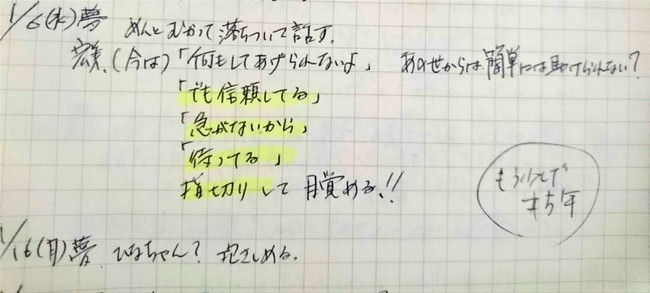 1/6(水)夢 めんとむかって落ちついて話す.
(今は)「何もしてあげられないよ」 あの世からは簡単には助けられない?
「でも信頼してる」
「急がないから」
「待ってる」
指切りして目覚める!!
もう少しで
1/16(月)夢 ひなちゃん? 抱きしめる.